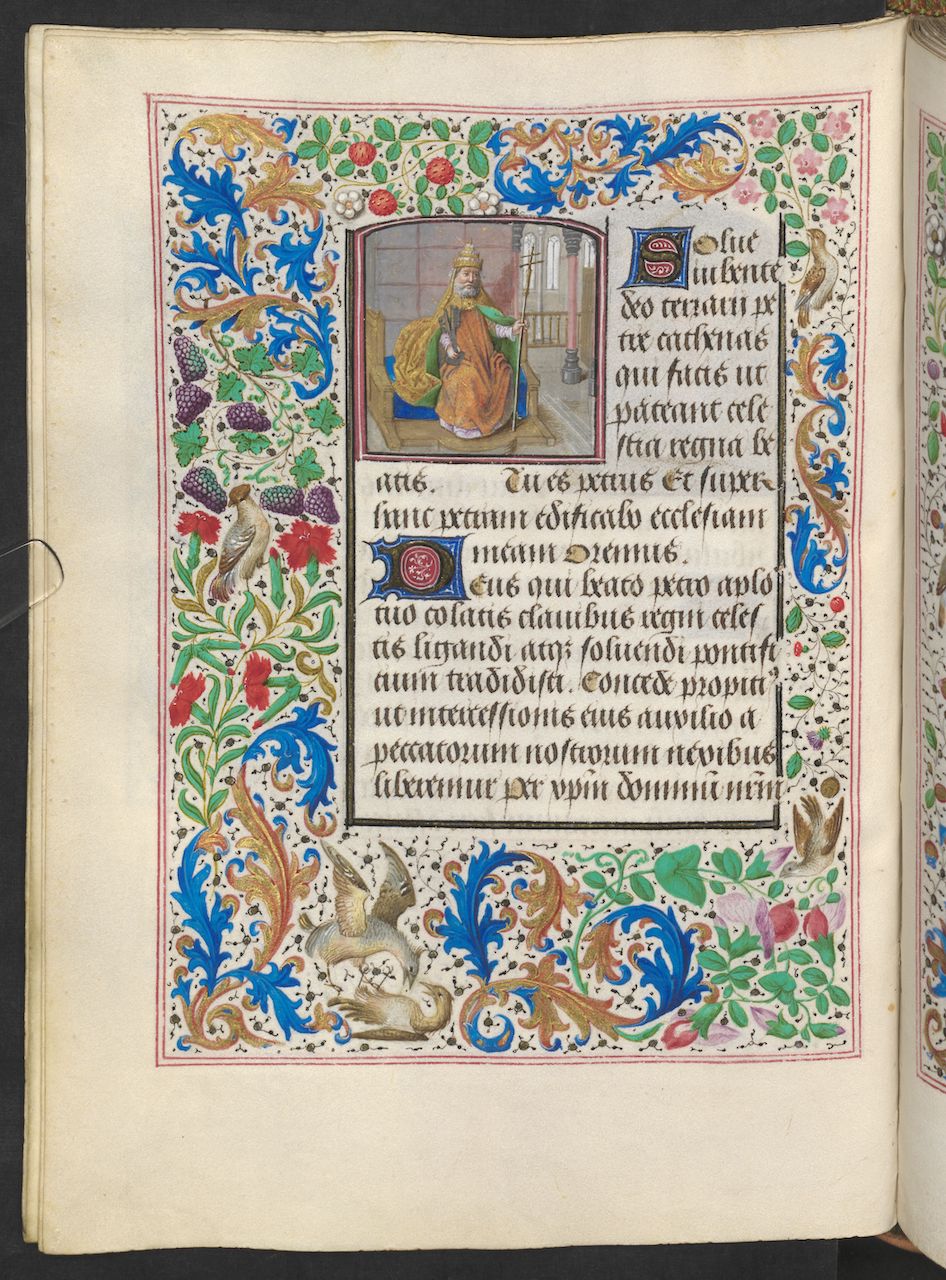 Solue
iubente
deo terrarum pe
tre cathenas
qui facis ut
pateant cele
stia regna be
atis. Tu es petrus Et super
hanc petram edificabo ecclesiam
meam Oremus.
Deus qui beato petro aplo
tuo colatis clauibus regni celes
tis ligandi atqꝫ soluendi pontifi
cium tradidisti. Concede propitiꝰ
ut intercessionis eius auxilio a
peccatorum nostrorum nexibus
liberemur Per xp̄m dominū nr̄m